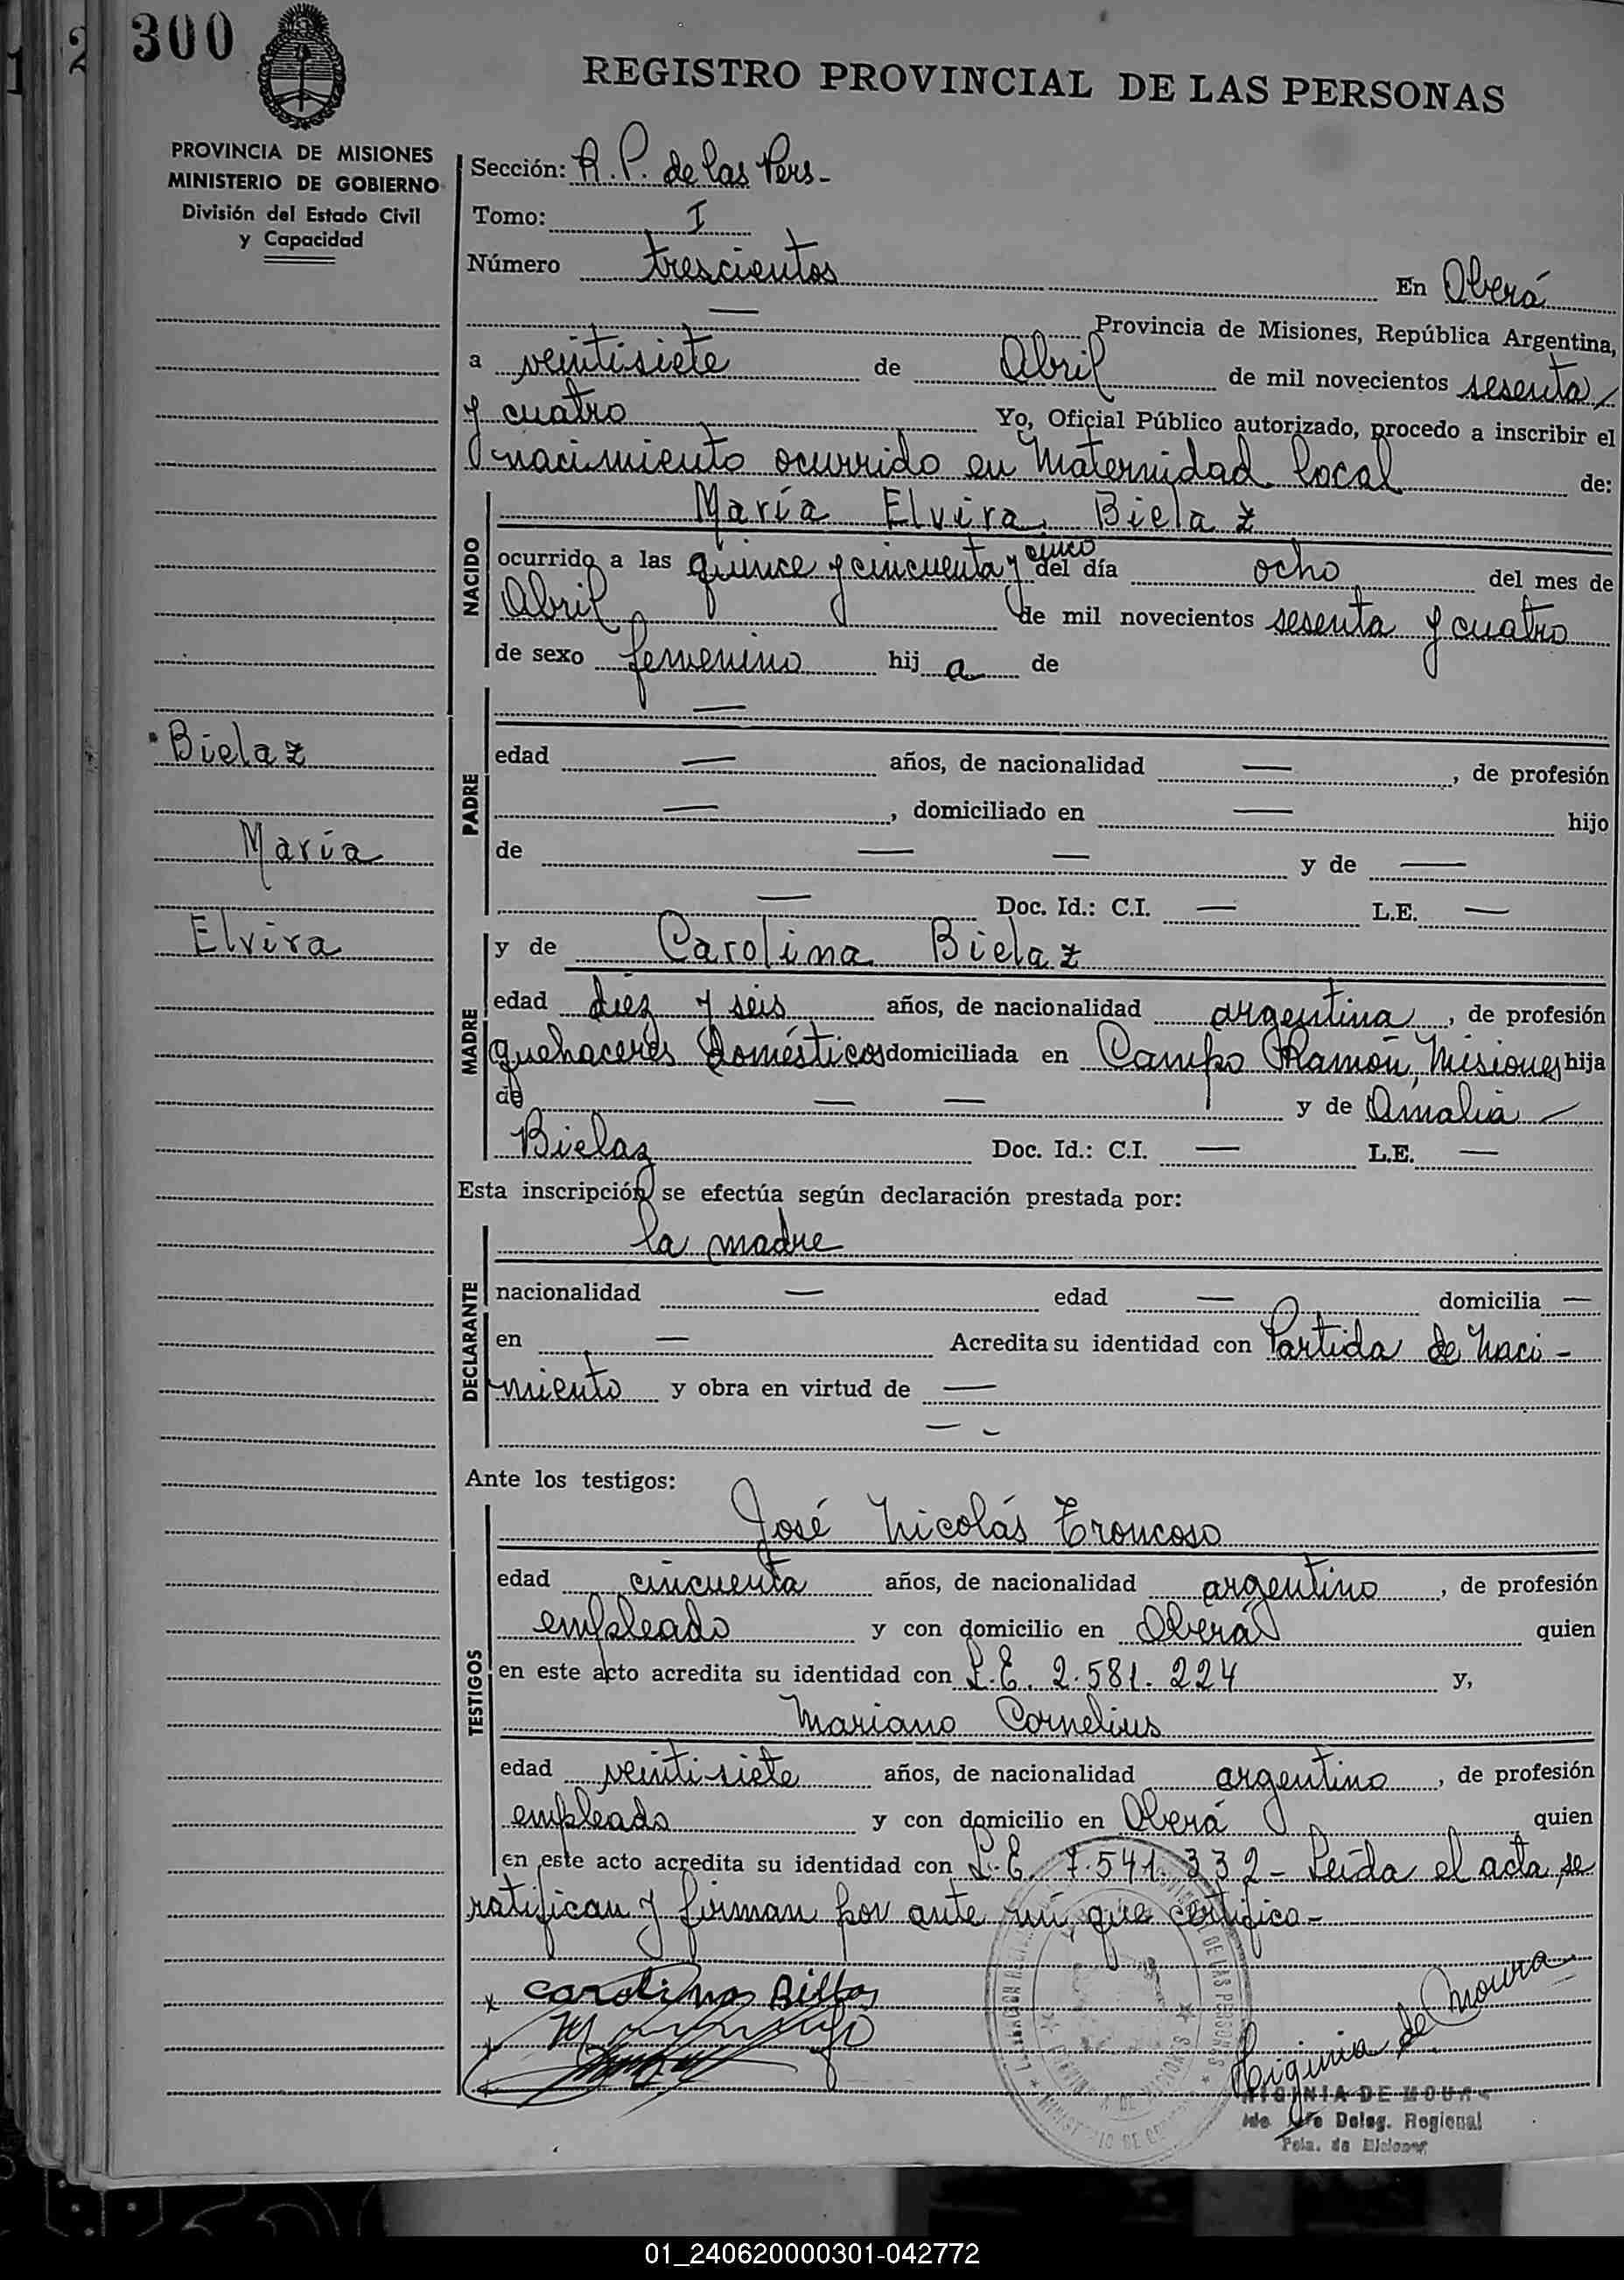 300
REGISTRO PROVINCIAL DE LAS PERSONAS
PROVINCIA DE MISIONES
MINISTERIO DE GOBIERNO
División del Estado Civil
y Capacidad
Sección: R. P. de las Pers-
Tomo: I
Número trescientos En Oberá
— Provincia de Misiones, República Argentina,
a veintisiete de Abril de mil novecientos sesenta
y cuatro Yo, Oficial Público autorizado, procedo a inscribir el
nacimiento ocurrido en Maternidad local de:
NACIDO
María Elvira Bielaz
ocurrido a las quince y cincuenta y cinco del día ocho del mes de
Abril de mil novecientos sesenta y cuatro
de sexo femenino hij a de
Bielaz
María
Elvira
PADRE
—
edad — años, de nacionalidad — , de profesión
— , domiciliado en — hijo
de — — y de —
— Doc. Id.: C.I. — L.E. —
MADRE
y de Carolina Bielaz
edad diez y seis años, de nacionalidad argentina , de profesión
quehaceres domésticos domiciliada en Campo Ramón, Misiones hija
de — — y de Amalia —
Bielaz Doc. Id.: C.I. — L.E. —
Esta inscripción se efectúa según declaración prestada por:
DECLARANTE
la madre
nacionalidad — edad — domicilia —
en — Acredita su identidad con Partida de Naci-
miento y obra en virtud de —
— -
Ante los testigos:
TESTIGOS
José Nicolás Troncoso
edad cincuenta años, de nacionalidad argentino , de profesión
empleado y con domicilio en Oberá quien
en este acto acredita su identidad con L.E. 2.581.224 y,
Mariano Cornelius
edad veintisiete años, de nacionalidad argentino , de profesión
empleado y con domicilio en Oberá quien
en este acto acredita su identidad con L.E. 7.541.332- Leída el acta, se
ratifican y firman por ante mí que certifico-
Higinia de Moura
HIGINIA DE MOURA
Deleg. Regional
Pcia. de Misiones
01_240620000301-042772